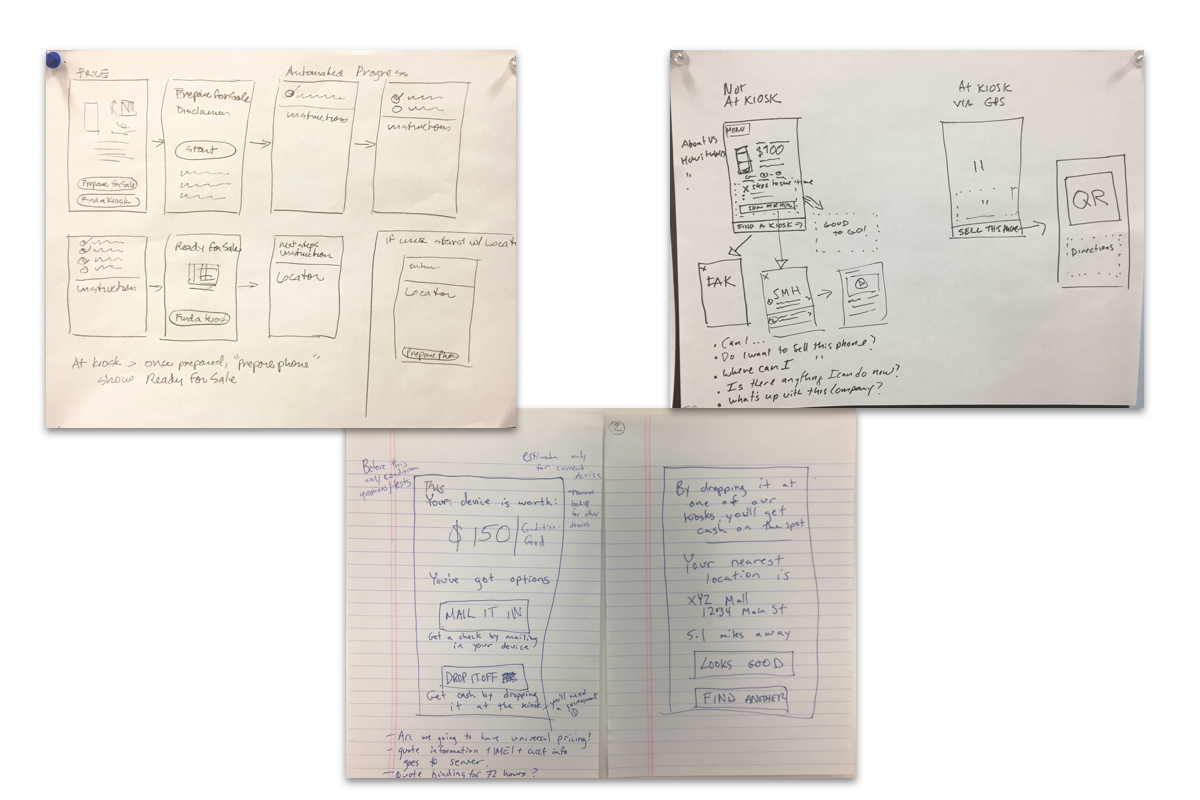 PRICE
Automated Progress
Prepare for Sale
Disclaimer
Start
instructions
instructions
Prepare for Sale
Find a Kiosk
instruction
Ready for Sale
Find a Kiosk
next steps
instruction
Locator
if user started w/ Locat
enter
Locator
Prepare Pho
At kiosk > once prepared, "Prepare phone"
show Ready for Sale
Not
At KIOSK
MENU
About US
How it works
"
$100
X steps to save time
FIND A KIOSK →
GOOD
TO GO!
FAK
X
SMH
X
• Can I...
• Do I want to sell this phone?
• Where can I "
• Is there anything I can do now?
• What's up with this Company?
At KIOSK
VIA GPS
"
"
SELL THIS PHONE
QR
Directions
Before this
any condition
questions/tests
estimate only
for current
device
lookup
for other
devices
This
Your device is worth:
$150
Condition:
Good
You've got options
MAIL IT IN
Get a check by mailing
in your device
DROP IT OFF
Get cash by dropping
it at the kiosk
you'll need
a government
ID
- Are we going to have universal pricing?
- quote information + IMEI + acct info
goes to server.
- Quote binding for 72 hours?
2
By dropping it at
one of our
kiosks, you'll get
cash on the spot
Your nearest
location is
XYZ Mall
1234 Main St
5.1 miles away
LOOKS GOOD
FIND ANOTHER